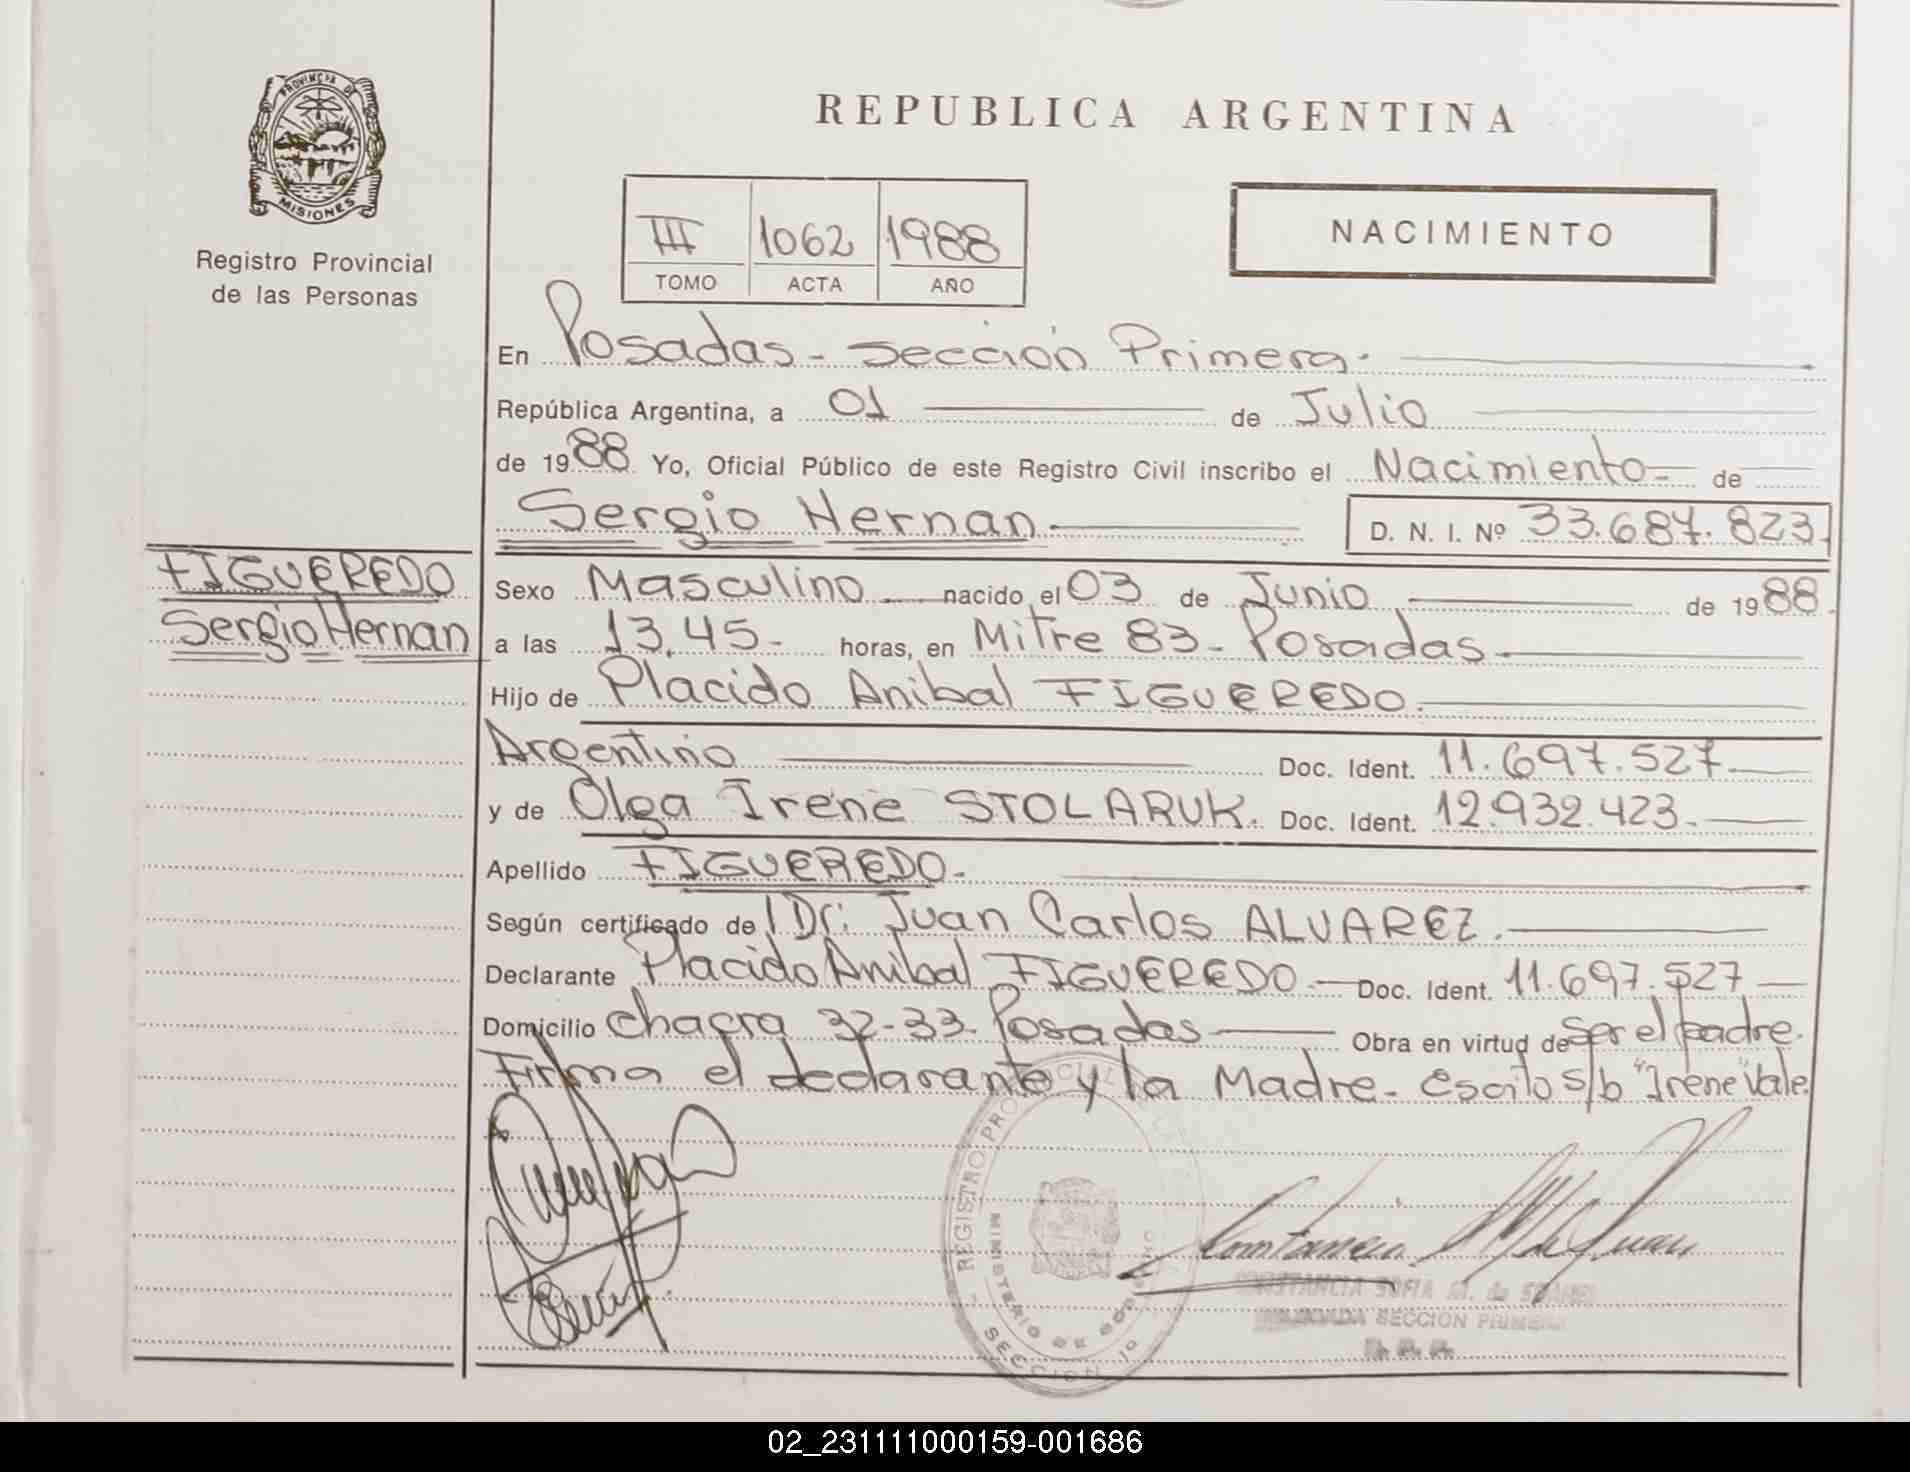 PROVINCIA DE
MISIONES
Registro Provincial
de las Personas
REPUBLICA ARGENTINA
III 1062 1988
TOMO ACTA AÑO
NACIMIENTO
En Posadas - Sección Primera.
República Argentina, a 01 de Julio
de 1988 Yo, Oficial Público de este Registro Civil inscribo el Nacimiento de
Sergio Hernan D. N. I. Nº 33.687.823
FIGUEREDO
Sergio Hernan
Sexo Masculino nacido el 03 de Junio de 1988.
a las 13,45- horas, en Mitre 83- Posadas
Hijo de Placido Anibal FIGUEREDO.
Argentino Doc. Ident. 11.697.527
y de Olga Irene STOLARUK. Doc. Ident. 12.932.423.
Apellido FIGUEREDO.
Según certificado de Dr: Juan Carlos ALVAREZ.
Declarante Placido Anibal FIGUEREDO. Doc. Ident. 11.697.527
Domicilio chacra 32-33. Posadas Obra en virtud de ser el padre.
Firma el declarante y la Madre. Escito s/b "Irene" Vale.
REGISTRO
MINISTERIO DE GOBIERNO
SECCION 1ª
CONSTANCIA SOFIA M. de
SECCION PRIMERA
02_231111000159-001686